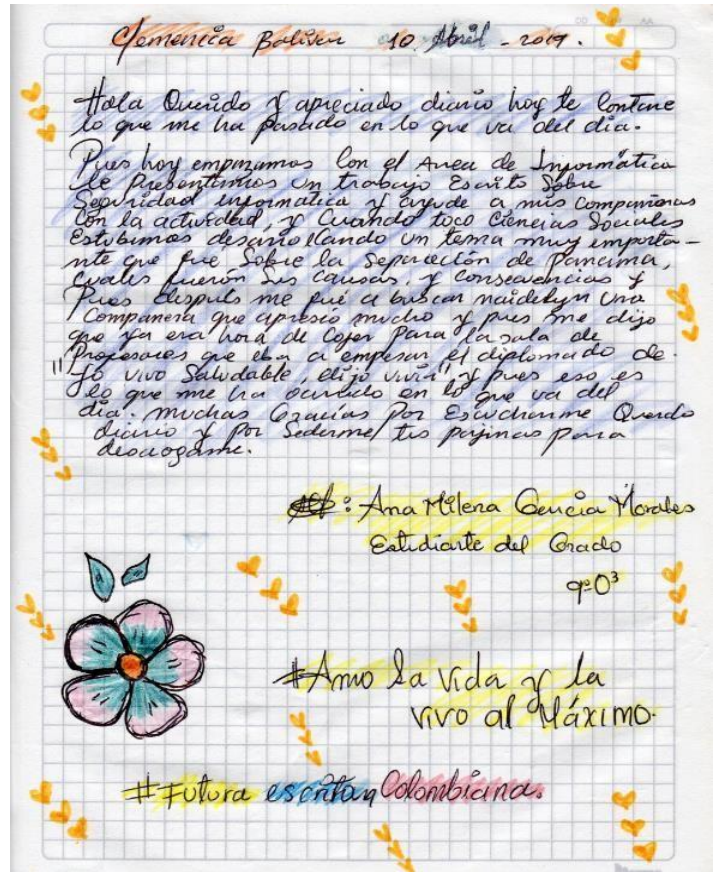 Clemencia Bolívar 10 Abril - 2019.
Hola Querido y apreciado diario hoy te Contare
lo que me ha pasado en lo que va del día.
Pues hoy empezamos Con el Area de Informática
le Presentamos un trabajo Escrito Sobre
Seguridad informatica y ayude a mis compañeros
Con la actividad, y Cuando toco Ciencias Sociales
Estubimos desarrollando un tema muy importa-
nte que fue Sobre la Separación de Panamá,
cuales fuerón Sus causas, y consecuencias y
Pues después me fué a buscar naidelyn una
Compañera que apresio mucho y pues me dijo
que ya era hora de Cojer Para la sala de
Profesores que iba a empesar el diplomado de
"Yo vivo Saludable, elijo vivir" y pues eso es
lo que me ha ocurrido en lo que va del
día. muchas Gracias Por Escucharme Querido
diario y por Sederme tus paginas para
desaogarme.
: Ana Milena García Morales
Estudiante del Grado
9º03
#Amo la vida y la
vivo al Máximo.
#Futura escritora Colombiana.